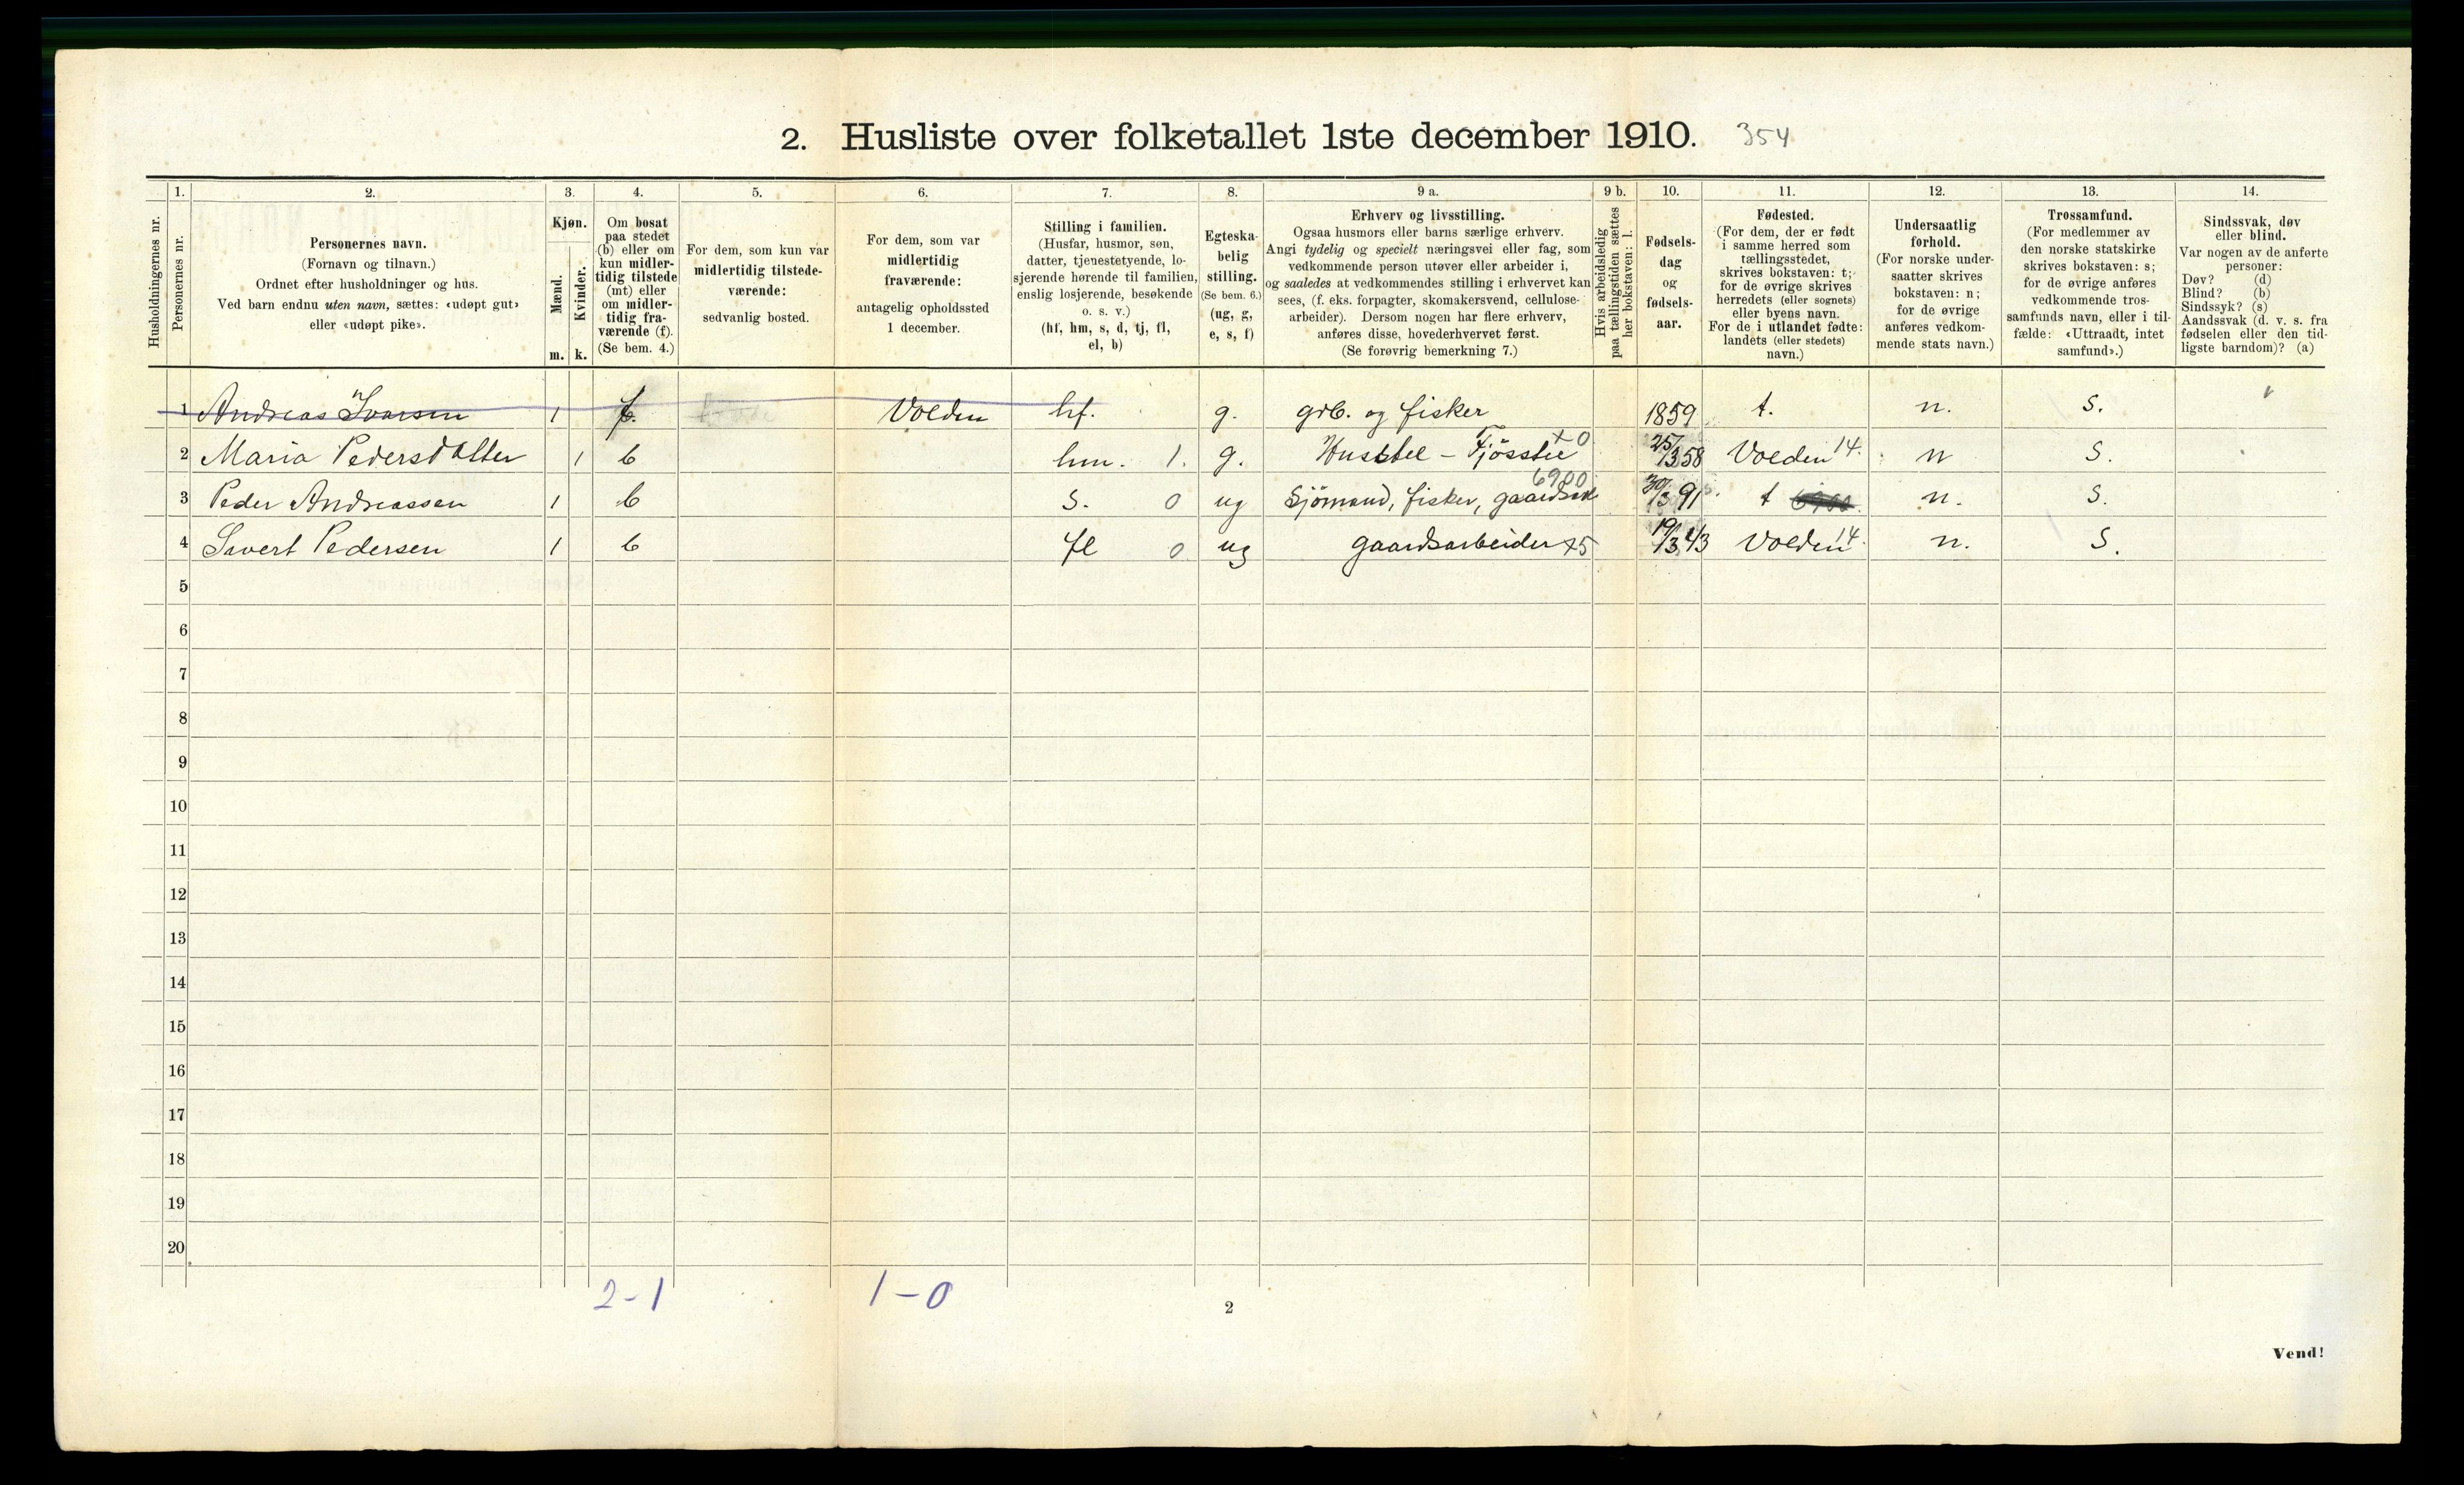 2. Husliste over folketallet 1ste december 1910. 354
Husholdningernes nr.
1. Personernes nr.
2. Personernes navn.
(Fornavn og tilnavn.)
Ordnet efter husholdninger og hus.
Ved barn endnu uten navn, sættes: «udøpt gut»
eller «udøpt pike».
3. Kjøn.
Mænd. m.
Kvinder. k.
4. Om bosat
paa stedet
(b) eller om
kun midler-
tidig tilstede
(mt) eller
om midler-
tidig fra-
værende (f).
(Se bem. 4.)
5. For dem, som kun var
midlertidig tilstede-
værende:
sedvanlig bosted.
6. For dem, som var
midlertidig
fraværende:
antagelig opholdssted
1 december.
7. Stilling i familien.
(Husfar, husmor, søn,
datter, tjenestetyende, lo-
sjerende hørende til familien,
enslig losjerende, besøkende
o. s. v.)
(hf, hm, s, d, tj, fl,
el, b)
8. Egteska-
belig
stilling.
(Se bem. 6.)
(ug, g,
e, s, f)
9 a. Erhverv og livsstilling.
Ogsaa husmors eller barns særlige erhverv.
Angi tydelig og specielt næringsvei eller fag, som
vedkommende person utøver eller arbeider i,
og saaledes at vedkommendes stilling i erhvervet kan
sees, (f. eks. forpagter, skomakersvend, cellulose-
arbeider). Dersom nogen har flere erhverv,
anføres disse, hovederhvervet først.
(Se forøvrig bemerkning 7.)
9 b. Hvis arbeidsledig
paa tællingstiden sættes
her bokstaven: l.
10. Fødsels-
dag
og
fødsels-
aar.
11. Fødested.
(For dem, der er født
i samme herred som
tællingsstedet,
skrives bokstaven: t;
for de øvrige skrives
herredets (eller sognets)
eller byens navn.
For de i utlandet fødte:
landets (eller stedets)
navn.)
12. Undersaatlig
forhold.
(For norske under-
saatter skrives
bokstaven: n;
for de øvrige
anføres vedkom-
mende stats navn.)
13. Trossamfund.
(For medlemmer av
den norske statskirke
skrives bokstaven: s;
for de øvrige anføres
vedkommende tros-
samfunds navn, eller i til-
fælde: «Uttraadt, intet
samfund».)
14. Sindssvak, døv
eller blind.
Var nogen av de anførte
personer:
Døv? (d)
Blind? (b)
Sindssyk? (s)
Aandssvak (d. v. s. fra
fødselen eller den tid-
ligste barndom)? (a)
1 Andreas Ivarsen 1 f. Volden hf. g. grb. og fisker 1859 t. n. s.
2 Maria Pedersdatter 1 b hm. 1. g. Husstel - Fjösstel +0 25/3 58 Volden 14. n s.
3 Peder Andreassen 1 b s. 0 ug Sjömand, fisker, 6900 91 t n. s.
4 Savert Pedersen 1 b fl 0 ug gaardsarbeider +5 19/3 43 Volden 14. n. s.
5
6
7
8
9
10
11
12
13
14
15
16
17
18
19
20
2-1 1-0
2
Vend!